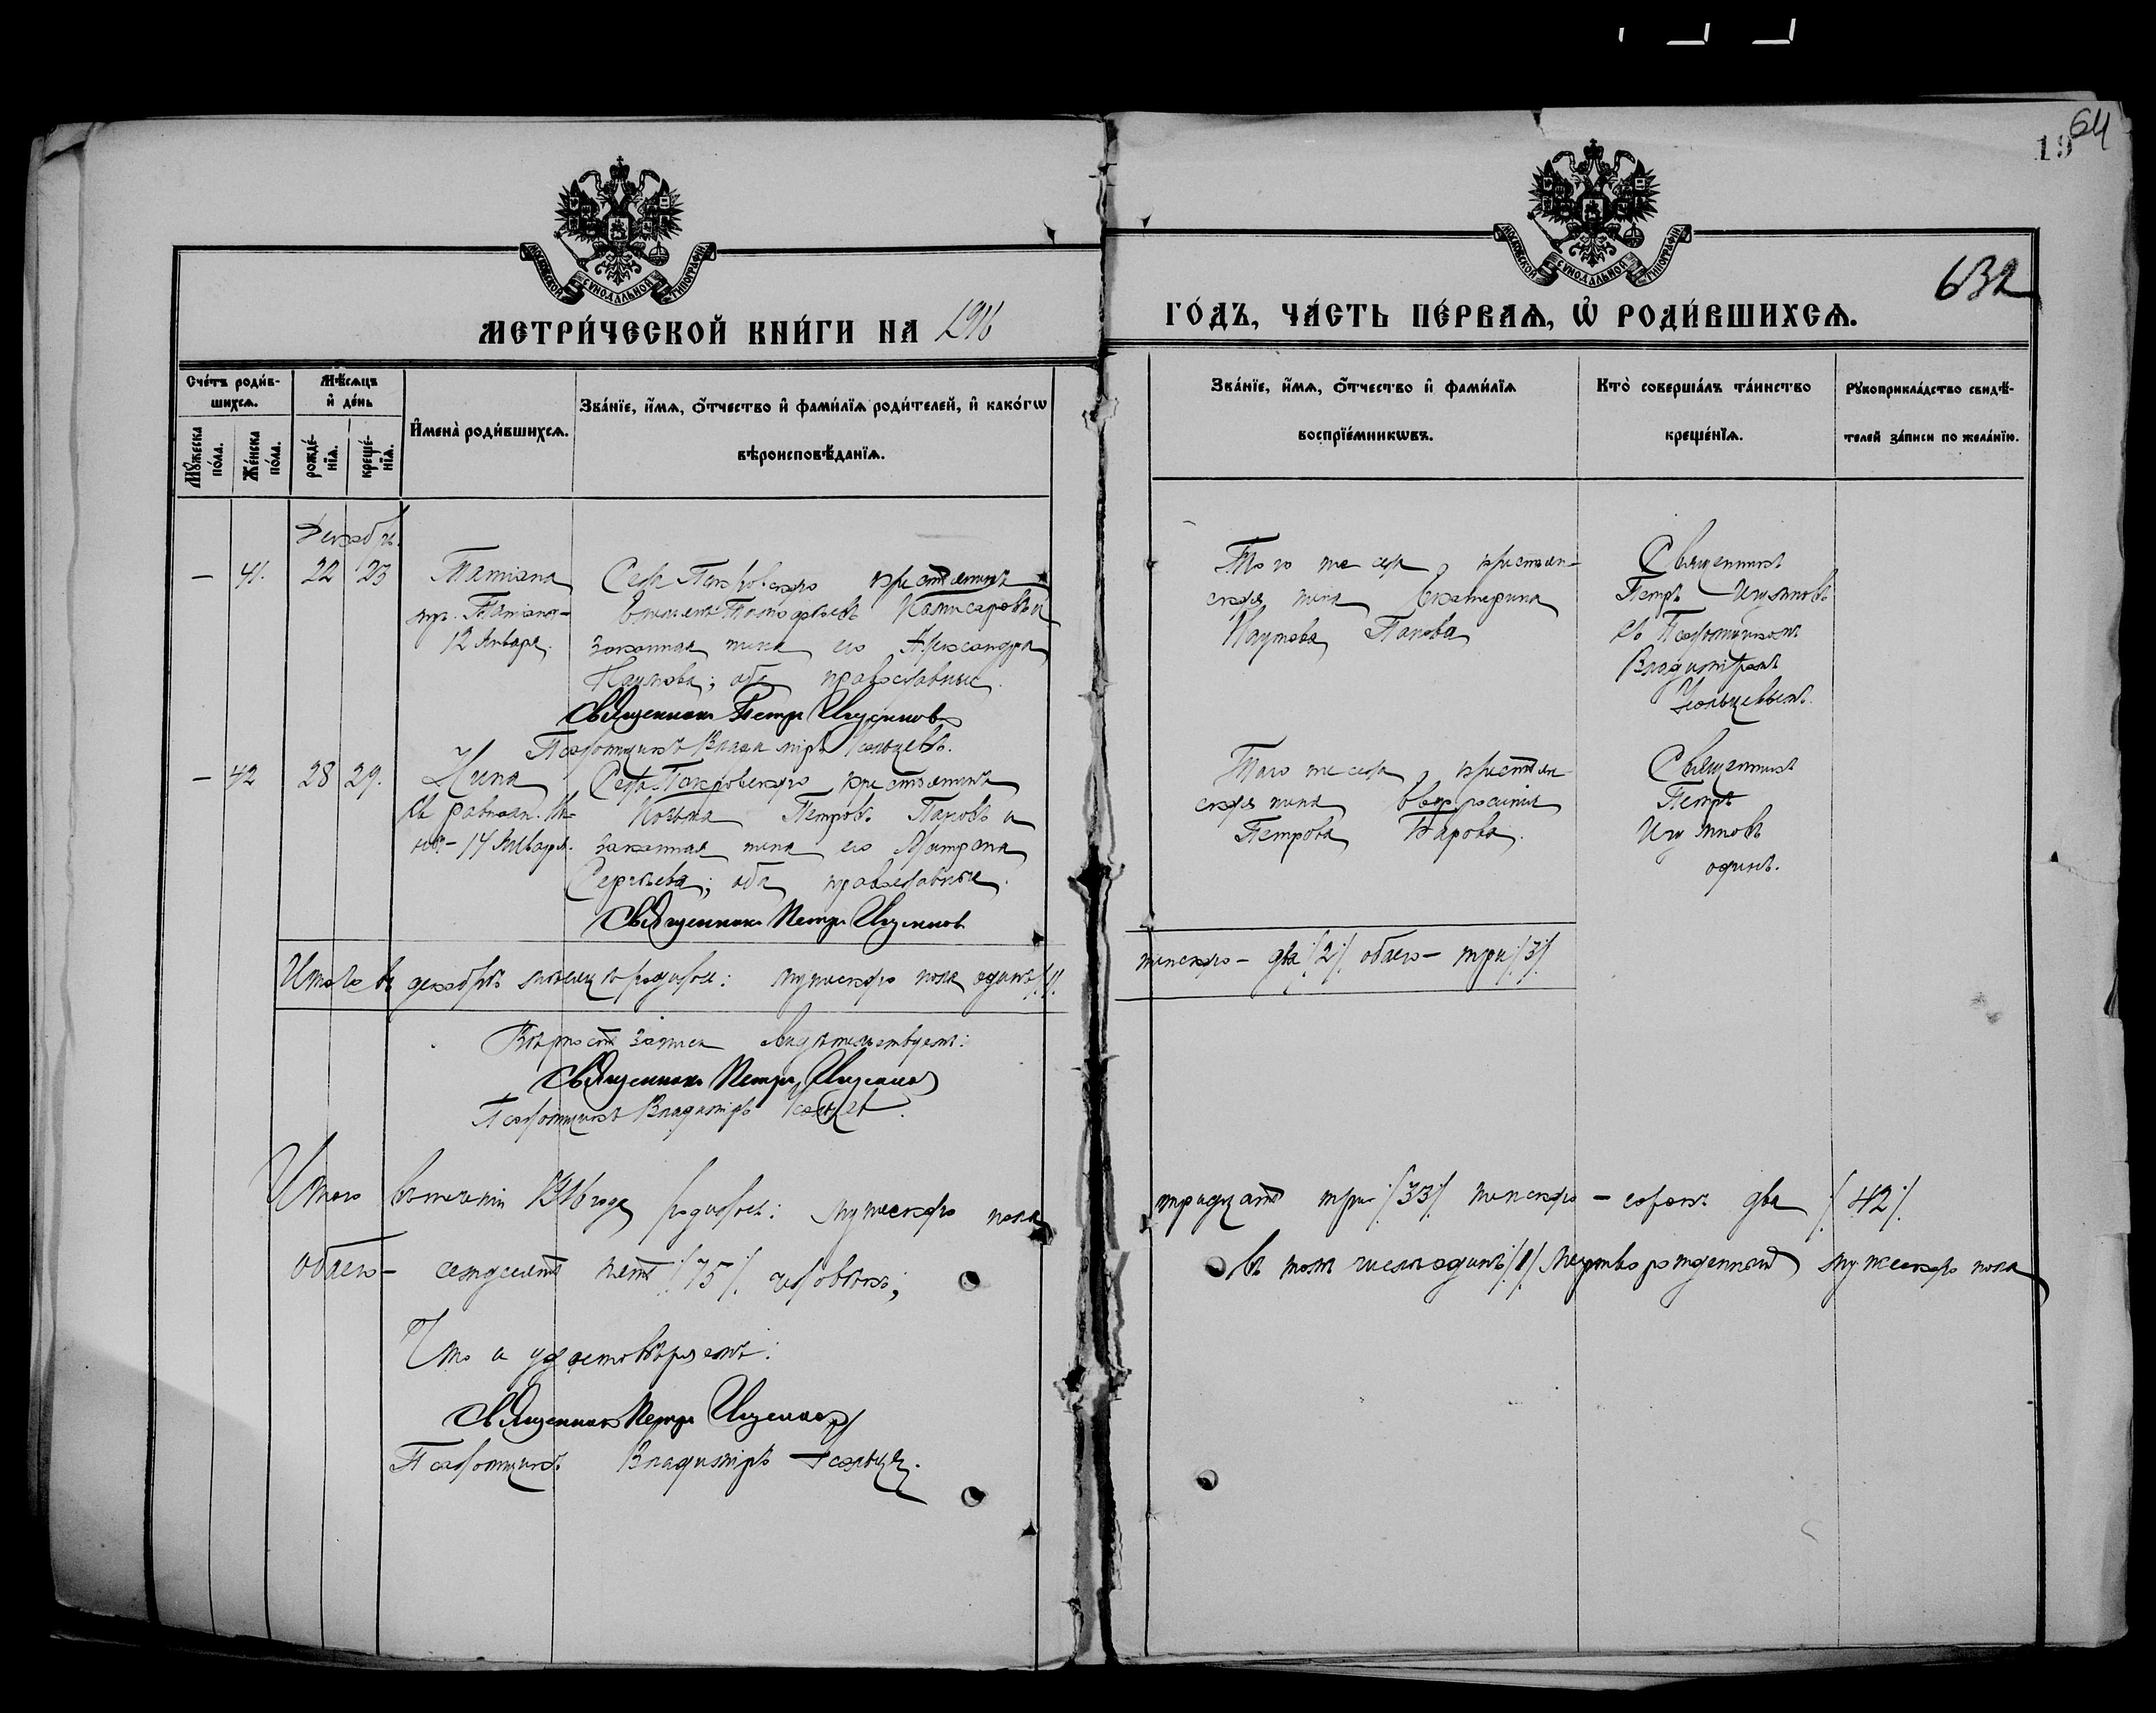 64
19
632
МОСКОВСКОЙ СУНОДАЛЬНОЙ ТИПОГРАФІИ
МОСКОВСКОЙ СУНОДАЛЬНОЙ ТИПОГРАФІИ
МЕТРИ́ЧЕСКОЙ КНИ́ГИ НА 1916
ГО́ДЪ, ЧА́СТЬ ПЕ́РВАѦ, Ѡ҆ РОДИ́ВШИХСѦ.
Сче́тъ роди́в-
шихсѧ.
Мꙋ́жеска
по́ла.
Же́нска
по́ла.
Мѣ́сѧцъ
и҆ де́нь
рожде́-
нїѧ.
креще́-
нїѧ.
И҆мена̀ роди́вшихсѧ.
Зва́нїе, и҆́мѧ, ѻ҆́тчество и҆ фами́лїѧ роди́телей, и҆ како́гѡ
вѣроисповѣ́данїѧ.
Зва́нїе, и҆́мѧ, ѻ҆́тчество и҆ фами́лїѧ
воспрїе́мникѡвъ.
Кто̀ соверша́лъ та́инство
креще́нїѧ.
Рꙋкоприкла́дство свидѣ́-
телей за́писи по жела́нїю.
Декабрь.
— 41. 22 23
Татіана
мр. Татіана-
12 Января.
Села Покровскаго крестьянинъ
Тимофѣевъ и
законная жена его Александра
Наумова; оба православные.
Священникъ Петръ Игумновъ
Псаломщикъ Владиміръ
Того же села, крестьян-
ская жена Екатерина
Наумова Панова
Священникъ
Петръ Игумновъ
съ Псаломщикомъ
Владиміромъ
— 42 28 29.
Нина
св. равноап. Ни-
ны - 14 Января.
Села Покровскаго крестьянинъ
Козьма Петровъ Пановъ и
законная жена его Матрона
Сергѣева; оба православные.
Священникъ Петръ Игумновъ
Того же села, крестьян-
ская жена Евфросинія
Петрова
Священникъ
Петръ
Игумновъ
одинъ.
Итого въ декабрѣ мѣсяцѣ родилось: мужескаго пола одинъ /1/.
женскаго - два /2/ обоего - три /3/
Вѣрность записи свидѣтельствуемъ:
Священникъ Петръ Игумновъ
Псаломщикъ Владиміръ
Итого въ теченіи 1916 года родилось: мужескаго пола
тридцать три /33/ женскаго - сорокъ два /42/
обоего - семдесятъ пять /75/ человѣкъ;
въ томъ числѣ одинъ /1/ мертворожденный мужескаго пола
Что и удостовѣряемъ:
Священникъ Петръ Игумновъ
Псаломщикъ Владиміръ